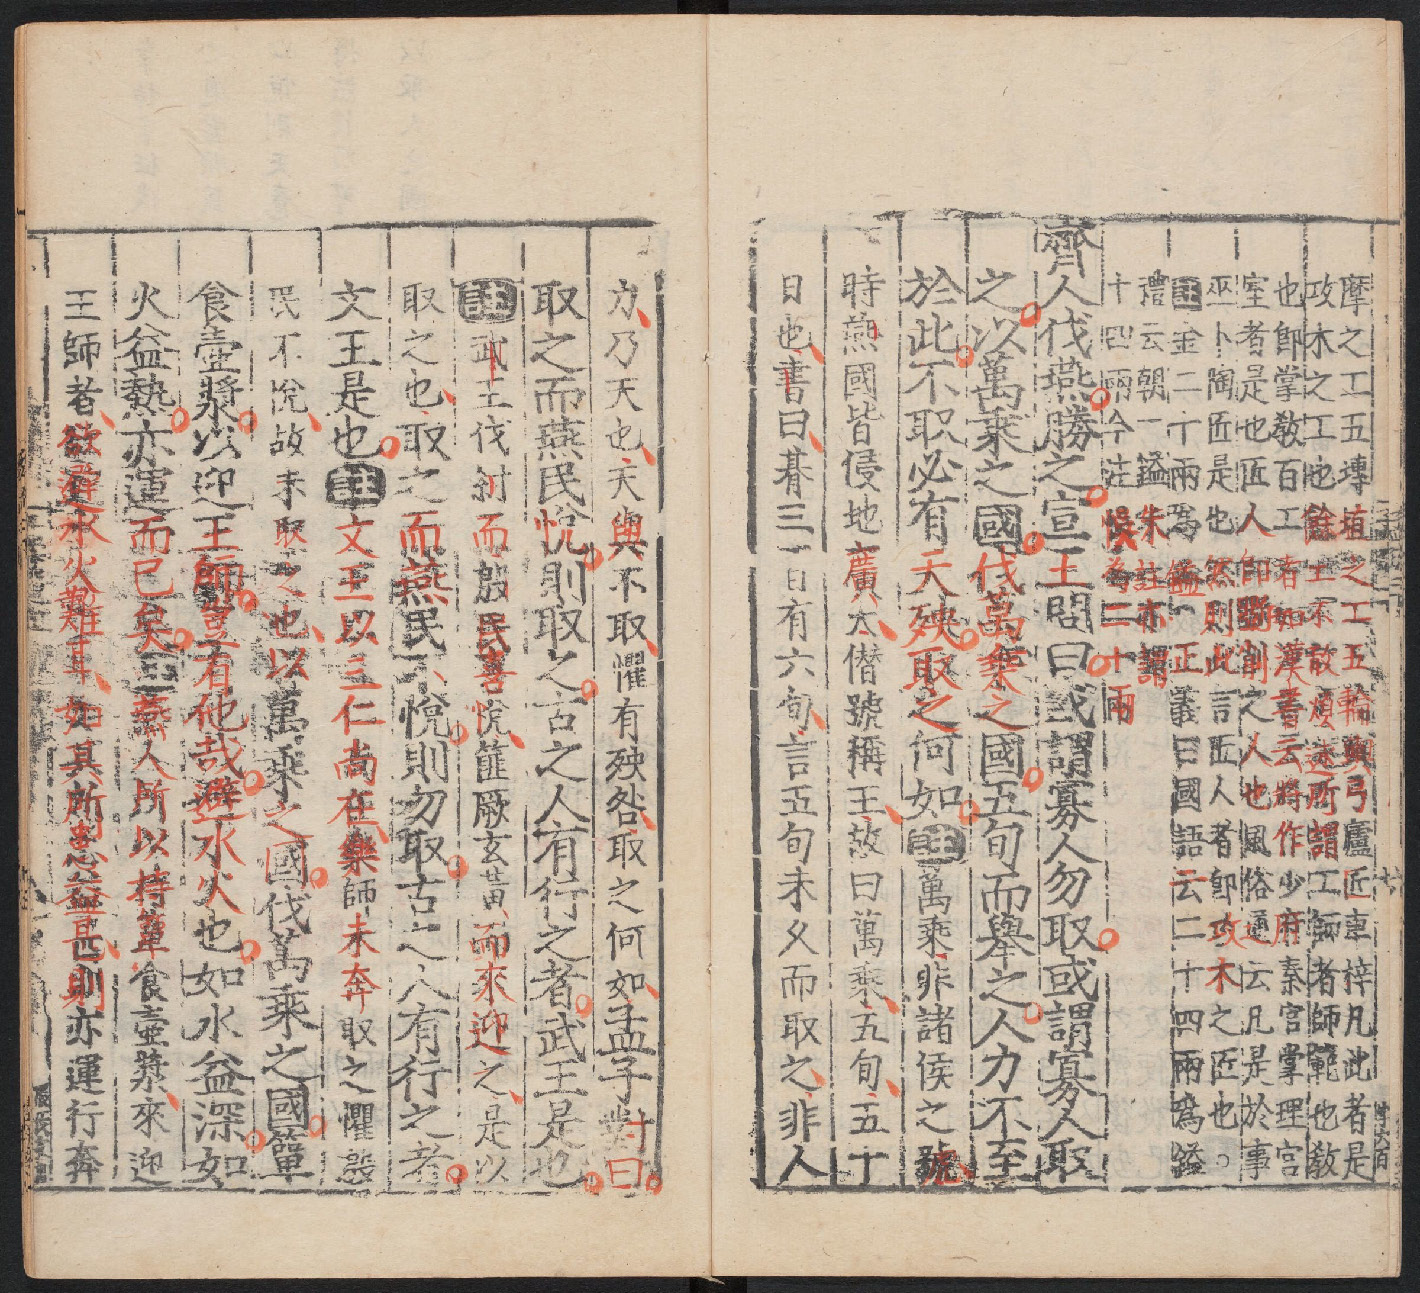 摩之工五塼埴之工五輪輿弓廬匠車梓凡此者是
攻木之工也餘工不敢煩逐所謂工師者師範也教
也即掌教百工者如漢書云將作少府秦官掌理宮
室者是也匠人即斲削之人也風俗通云凡是於事
巫卜陶匠是也然則此言匠人者即攻木之匠也。
註金二十兩為鎰正義曰國語云二十四兩為鎰
禮云朝一鎰朱註亦謂
十四兩今註誤為二十兩
齊人伐燕勝之宣王問曰或謂寡人勿取或謂寡人取
之以萬乘之國伐萬乘之國五旬而舉之人力不至
於此不取必有天殃取之何如註萬乘非諸侯之號
時燕國皆侵地廣大僭號稱王故曰萬乘五旬五十
日也書曰朞三百有六旬言五旬未久而取之非人
力乃天也天與不取懼有殃咎取之何如孟子對曰
取之而燕民悅則取之古之人有行之者武王是也
註武王伐紂而殷民喜悅篚厥玄黃而來迎之是以
取之也取之而燕民不悅則勿取古之人有行之者
文王是也註文王以三仁尚在樂師未奔取之懼殷
民不悅故未取之也以萬乘之國伐萬乘之國簞
食壺漿以迎王師豈有他哉避水火也如水益深如
火益熱亦運而已矣註燕人所以持簞食壺漿來迎
王師者欲避水火難耳如其所患益甚則亦運行奔